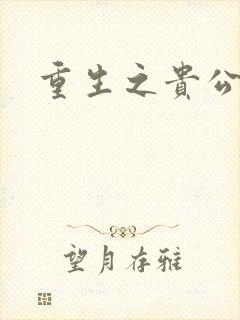 重生之貴公
望月存雅